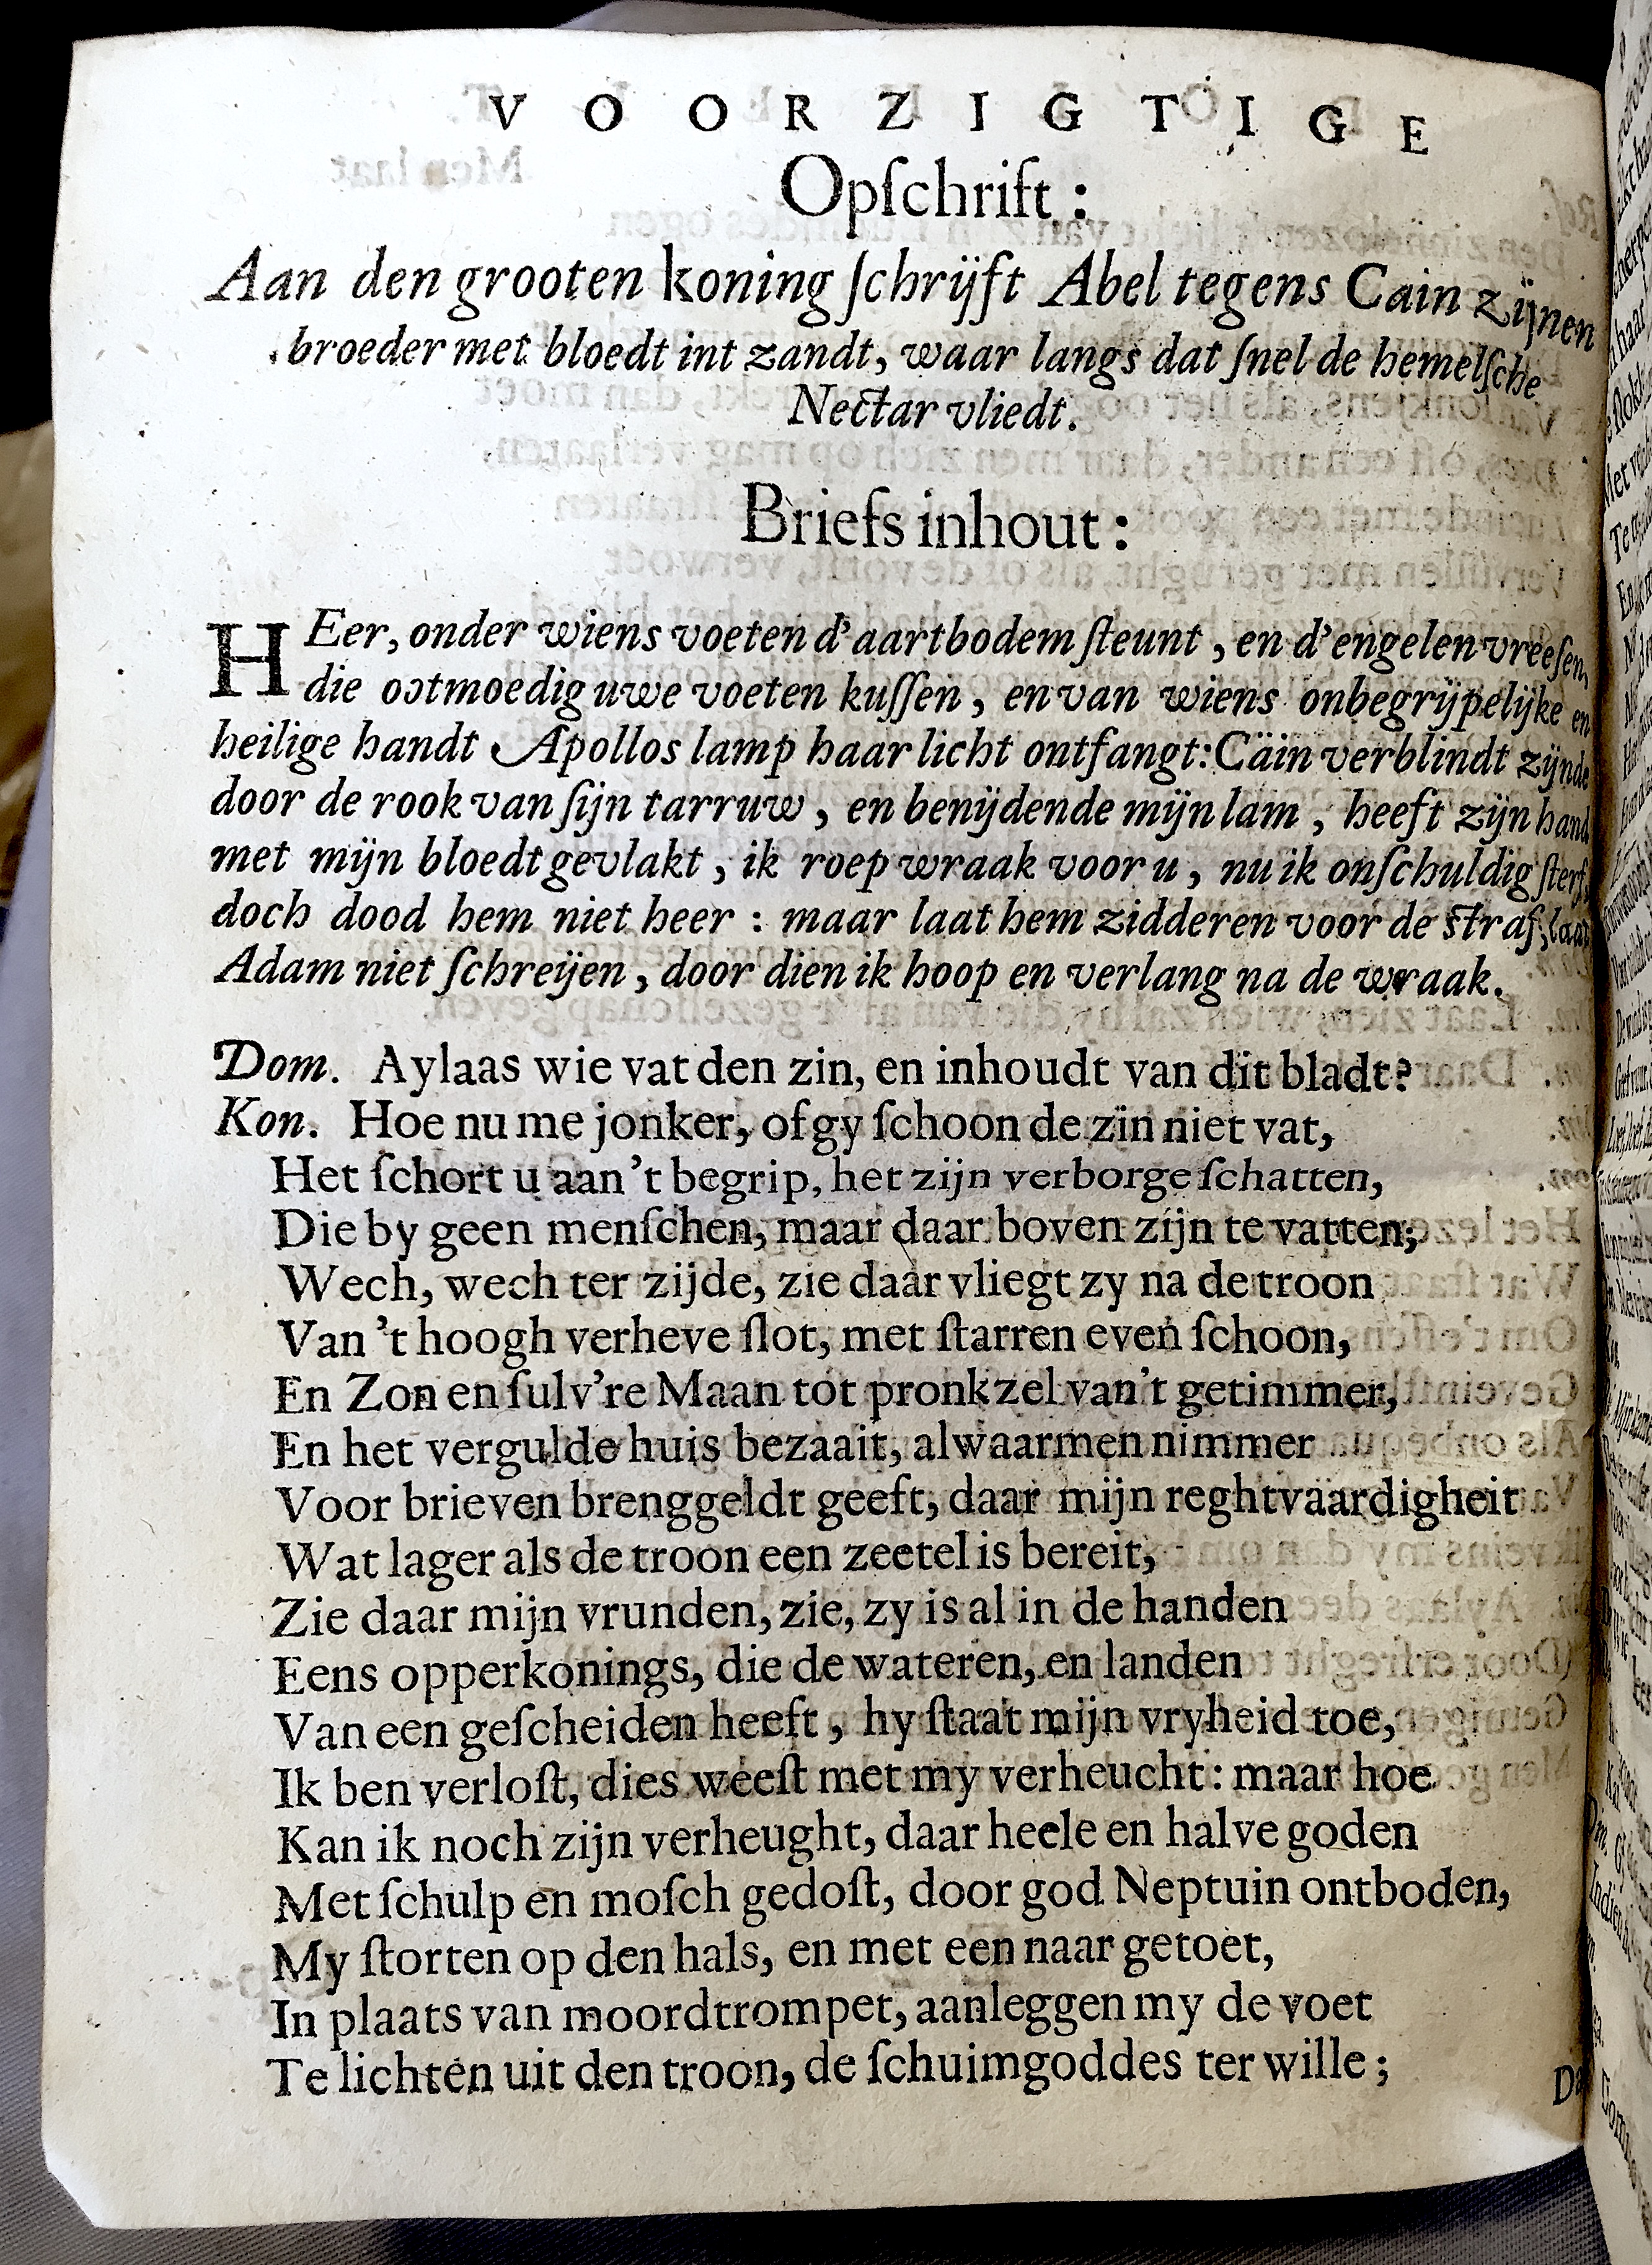 VOORZIGTIGE
Opſchrift:
Aan den grooten koning ſchrijft Abel tegens Cain zijnen
broeder met bloedt int zandt, waar langs dat ſnel de hemelſche
Nectar vliedt.
Briefs inhout:
HEer, onder wiens voeten d'aartbodem ſteunt, en d'engelen vreeſen,
die ootmoedig uwe voeten kuſſen, en van wiens onbegrijpelijke en
heilige handt Apollos lamp haar licht ontfangt: Cäin verblindt zijnde
door de rook van ſijn tarruw, en benijdende mijn lam, heeft zijn hand
met mijn bloedt gevlakt, ik roep wraak voor u, nu ik onſchuldig ſterf,
doch dood hem niet heer: maar laat hem zidderen voor de ſtraf, laat
Adam niet ſchreijen, door dien ik hoop en verlang na de wraak.
Dom. Aylaas wie vat den zin, en inhoudt van dit bladt?
Kon. Hoe nu me jonker, of gy ſchoon de zin niet vat,
Het ſchort u aan 't begrip, het zijn verborge ſchatten,
Die by geen menſchen, maar daar boven zijn te vatten;
Wech, wech ter zijde, zie daar vliegt zy na de troon
Van 't hoogh verheve ſlot, met ſtarren even ſchoon,
En Zon en ſulv're Maan tot pronkzel van't getimmer,
En het vergulde huis bezaait, alwaarmen nimmer
Voor brieven brenggeldt geeft, daar mijn reghtvaardigheit
Wat lager als de troon een zeetel is bereit,
Zie daar mijn vrunden, zie, zy is al in de handen
Eens opperkonings, die de wateren, en landen
Van een geſcheiden heeft, hy ſtaat mijn vryheid toe,
Ik ben verloſt, dies weeſt met my verheucht: maar hoe
Kan ik noch zijn verheught, daar heele en halve goden
Met ſchulp en moſch gedoſt, door god Neptuin ontboden,
My ſtorten op den hals, en met een naar getoet,
In plaats van moordtrompet, aanleggen my de voet
Te lichten uit den troon, de ſchuimgoddes ter wille;